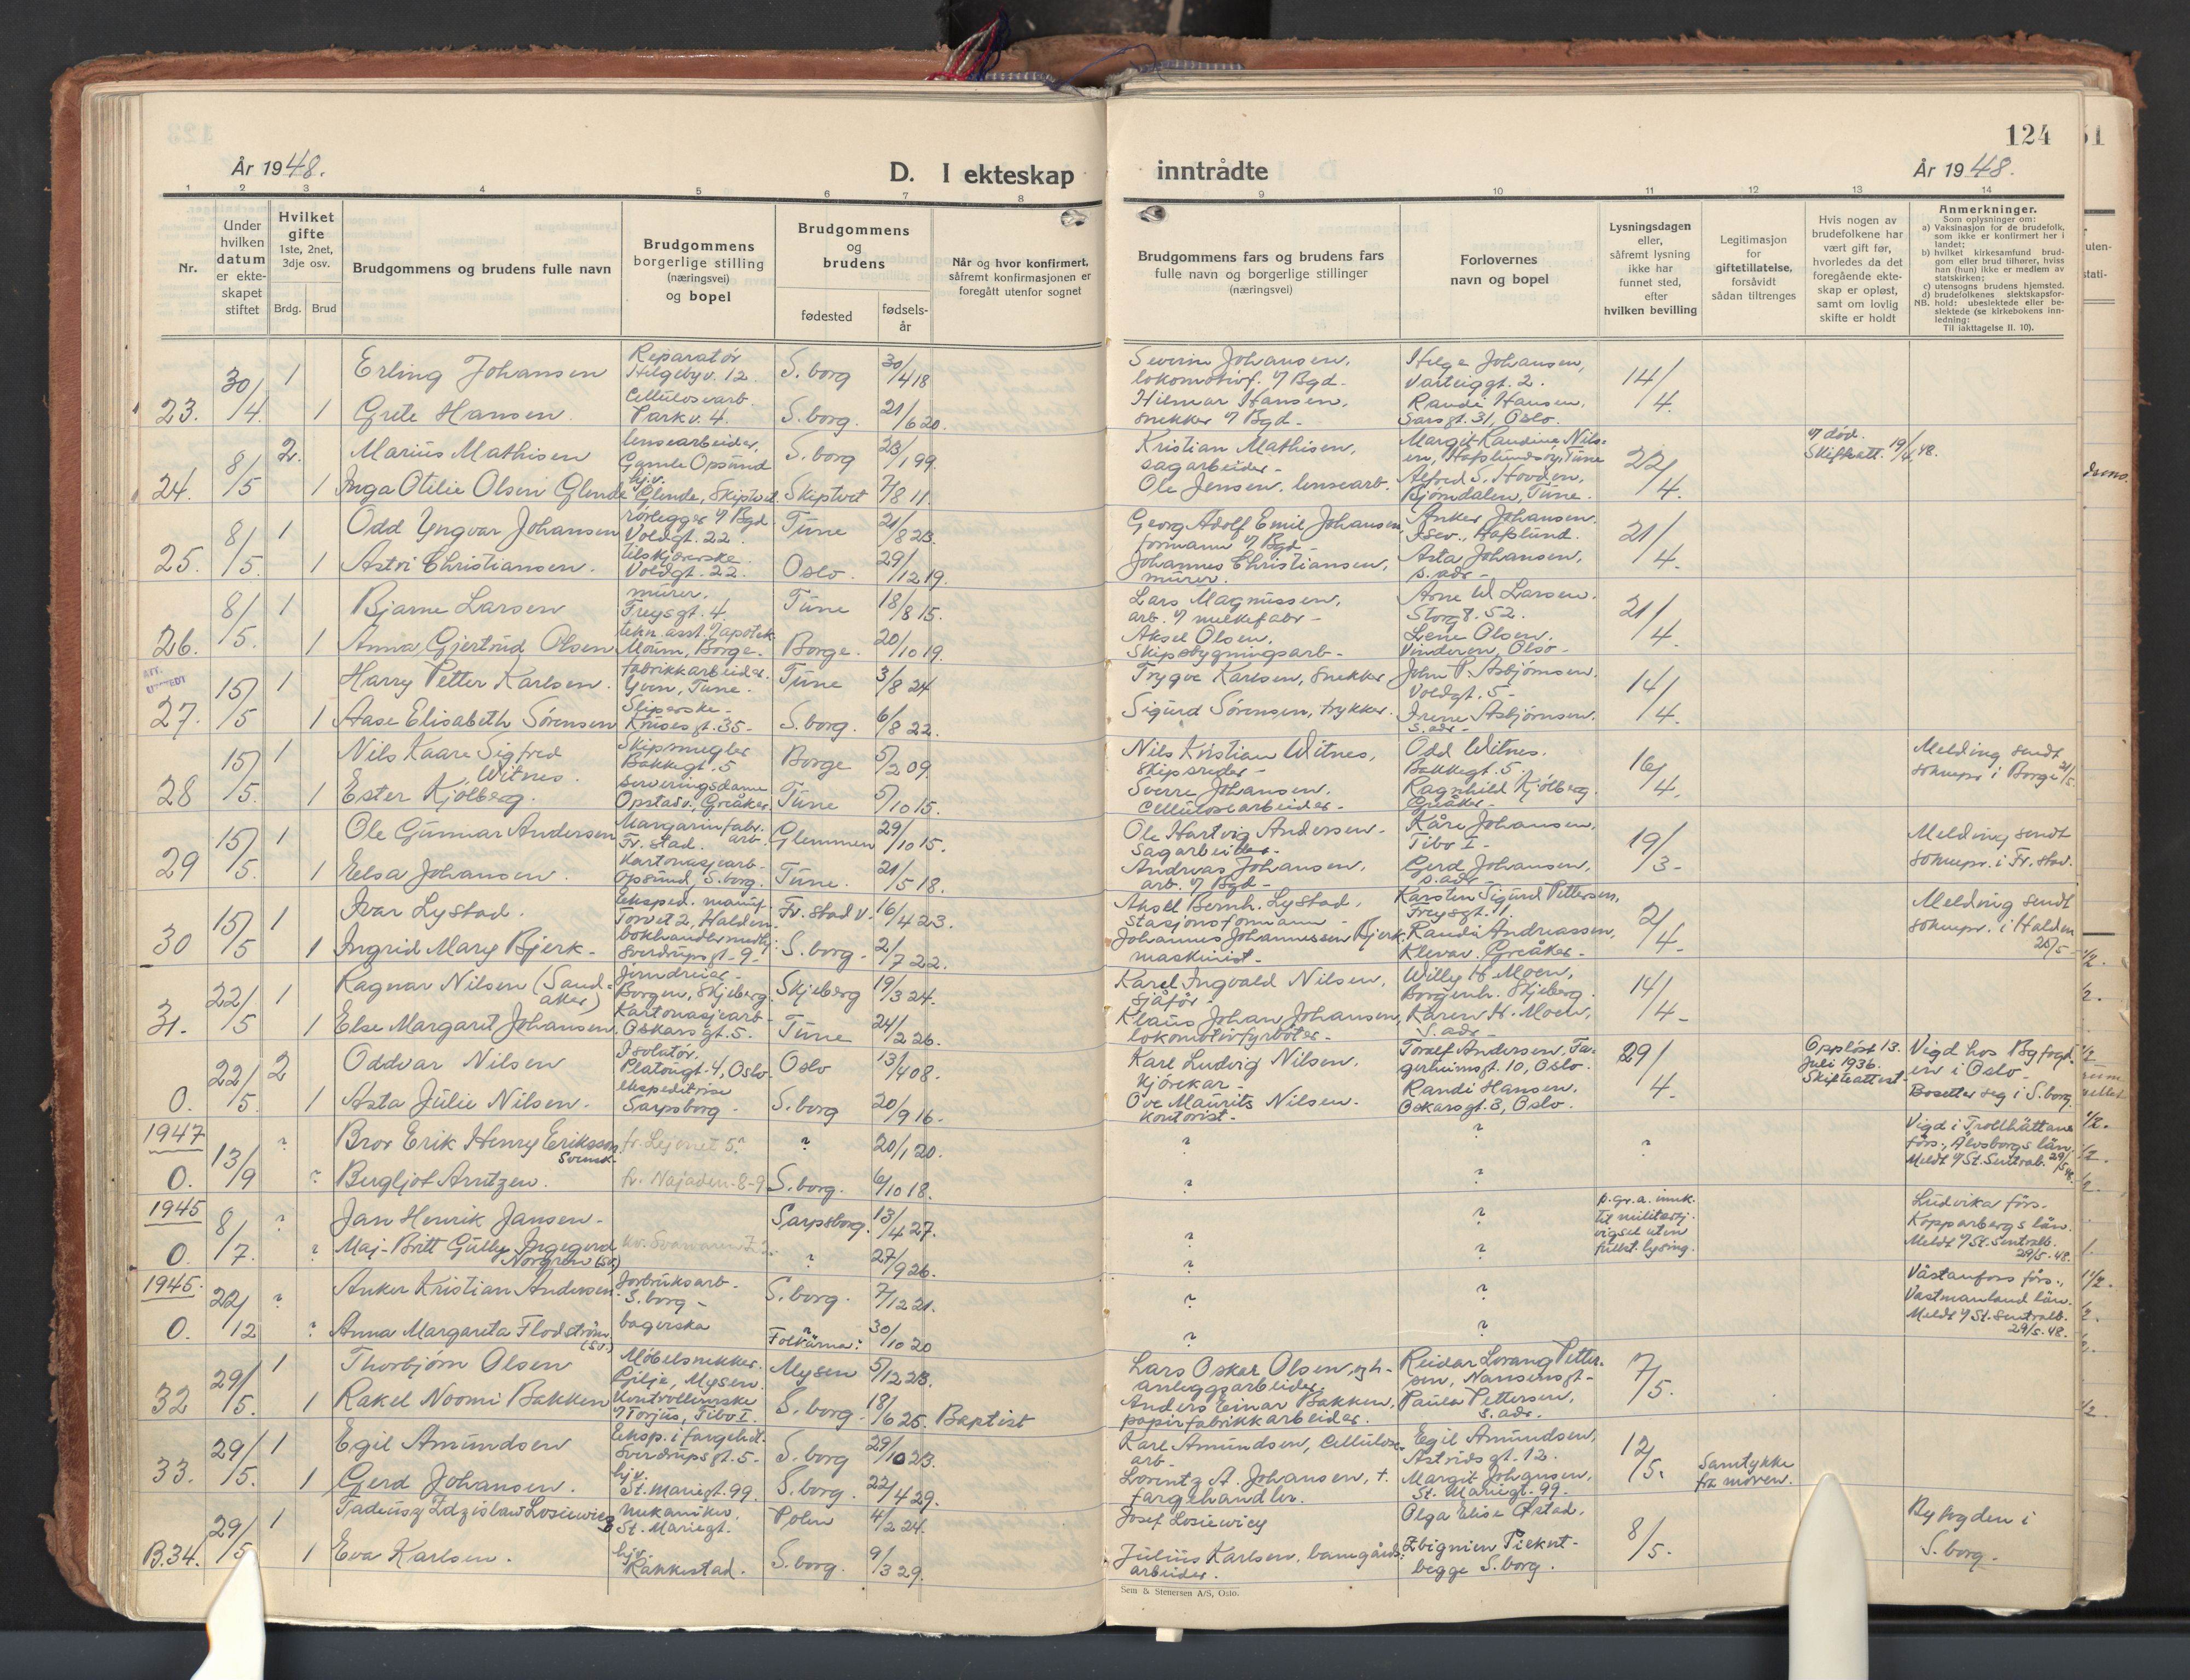 124
År 1948.
D. I ekteskap inntrådte
År 1948.
1 2 3 4 5 6 7 8 9 10 11 12 13 14
Nr.
Under hvilken datum er ekteskapet stiftet
Hvilket gifte 1ste, 2net, 3dje osv.
Brdg. Brud
Brudgommens og brudens fulle navn
Brudgommens borgerlige stilling (næringsvei) og bopel
Brudgommens og brudens
fødested
fødselsår
Når og hvor konfirmert, såfremt konfirmasjonen er foregått utenfor sognet
Brudgommens fars og brudens fars fulle navn og borgerlige stillinger (næringsvei)
Forlovernes navn og bopel
Lysningsdagen eller, såfremt lysning ikke har funnet sted, efter hvilken bevilling
Legitimasjon for giftetillatelse, forsåvidt sådan tiltrenges
Hvis nogen av brudefolkene har vært gift før, hvorledes da det foregående ekteskap er opløst, samt om lovlig skifte er holdt
Anmerkninger.
Som oplysninger om:
a) Vaksinasjon for de brudefolk, som ikke er konfirmert her i landet;
b) hvilket kirkesamfund brudgom eller brud tilhører, hviss han (hun) ikke er medlem av statskirken;
c) utensogns brudens hjemsted.
d) brudefolkenes slektskapsforhold: ubeslektede eller beslektede (se kirkebokens innledning:
NB.
Til iakttagelse II. 10).
23. 30/4 1 Erling Johansen Reparatør Helgebyv. 12. S. borg 30/4 18 Severin Johansen, lokomotivf. Helge Johansen, Varteiggt. 2. 14/4.
1 Grete Hansen. Cellulosearb. Parkv. 4. S. borg. 21/6 20. Hilmar Hansen, snekker Randi Hansen, Sarsgt. 31, Oslo.
24. 8/5 2. Marius Mathisen lensearbeider, Gamle Opsund S. borg 23/1 99. Kristian Mathisen, sagarbeider - Margit Randine Nilsen, Hafslundsøy, Tune 22/4. død. Skifteatt. 19/4 48.
1 Inga Otilie Olsen Glende hj.v. Glende, Skiptvet Skiptvet 7/8 11. Ole Jensen, lensearb. Alfred S. Hovden, Bjørndalen, Tune.
25. 8/5. 1 Odd Yngvar Johansen rørlegger Voldgt. 22. Tune 21/8 23. Georg Adolf Emil Johansen, formann Anker Johansen. Isev., Hafslund. 21/4.
1 Astri Christiansen. tilskjærerske Voldgt. 22. Oslo. 29/12 19. Johannes Christiansen, murer. Asta Johansen, s. adr -
26. 8/5. 1 Bjarne Larsen murer. Freysgt. 4. Tune 18/8 15. Lars Magnussen, arb. Arne W. Larsen. Storg. 52. 21/4.
1 Anna Gjertrud Olsen tekn. asst. apotek. Moum, Borge. Borge. 20/10 19. Aksel Olsen, Skipsbygningsarb - Lene Olsen. Vinderen, Olso -
ATT. UTSTEDT
27. 15/5 1 Harry Petter Karlsen. fabrikkarbeider. Yven, Tune. Tune 3/8 24 Trygve Karlsen, snekker John P. Asbjørnsen. Voldgt. 5 - 14/4.
1 Aase Elisabeth Sørensen Sliperske - Kruses gt. 35 - S. borg. 6/8 22. Sigurd Sørensen, trykker. Irene Asbjørnsen. s. adr -
28 15/5. 1 Nils Kaare Sigfred Witnes. Skipsmegler Bakkegt. 5 Borge 5/2 09 Nils Kristian Witnes, Odd Witnes. Bakkegt. 5. 16/4. Melding sendt sokнepr. i Borge 21/5.
1 Ester Kjølberg. serveringsdame Opstadv., Greåker. Tune 5/10 15. Sverre Johansen. cellulosearbeider - Ragnhild Kjølberg. Greåker -
29 15/5. 1 Ole Gunnar Andersen Margarinfabr. arb. Fr. stad. Glemmen 29/10 15. Ole Hartvig Andersen - sagarbeider - Kåre Johansen, Tibo I - 19/3 - Melding sendt soknepr. i Fr. stad.
1 Elsa Johansen. Kartonasjearb - Opsund, S. borg. Tune. 21/5 18. Andreas Johansen, arb. Gerd Johansen, s. adr -
30 15/5 1 Ivar Lystad. Eksped. manuf. Torvet 2, Halden. Fr. stad v. 16/4 23. Aksel Bernh. Lystad, stasjonsformann - Karsten Sigurd Pettersen, Freysgt. 11. 2/4 - Melding sendt soknepr. i Halden 25/5 -
1 Ingrid Mary Bjerk - bokhandlermedhj. Sverdrupsgt - 9 - S. borg - 2/7 22. Johannes Johannessen Bjerk, maskinist - Randi Andreassen, Klevav. Greåker -
31. 22/5 1 Ragnar Nilsen (Sandaker) Jerndreier - Borgen, Skjeberg. Skjeberg 19/3 24. Karel Ingvald Nilsen, sjåfør - Willy H. Moen, Borgenh. Skjeberg. 14/4 -
1 Else Margaret Johansen. Kartonasjearb - Oskarsgt. 5. Tune 24/2 26. Klaus Johan Johansen, lokomotivfyrbøter - Karen H. Moen, s. adr -
0. 22/5. 2 Oddvar Nilsen Isolatør. Platougt. 4, Oslo - Oslo 13/4 08. Karl Ludvig Nilsen. kjørekar - Toralf Andersen, Tagerheimsgt. 10, Oslo. 29/4. Oppløst 13. Juli 1936. Skifteattest. Vigd hos Bgfogden i Oslo
1 Asta Julie Nilsen. ekspeditrise Sarpsborg - S. borg 20/9 16. Ove Maurits Nilsen. Kontorist - Randi Hansen. Oskarsgt. 3, Oslo. Bosetter seg i S. borg.
1947
0. 13/9 ? Bror Erik Henry Eriksson Svensk. fr. Lejonet 5. ? 20/1 20. ? ? ? Vigd i Trollhättans förs., Älvsborgs län. Meldt St. Sentralb. 29/5 48.
? Bergljot Arntzen. fr. Najaden 8-9 S. borg. 6/10 18. ? ?
1945
0. 8/7. ? Jan Henrik Jansen - Sarpsborg. 13/4 27. ? ? p. gr. a. innk. til militærtj. vigsel uten fullst. lysing. Ludvika förs. Kopparbergs län. Meldt St. Sentralb. 29/5. 48.
? Maj-Britt Gully Ingegerd Norgren (sv.) kv. Svanen 7. ? 27/9 26. ? ?
1945.
0. 22/12 ? Anker Kristian Andersen. Jorbruksarb - S. borg - S. borg. 7/12 21. ? ? Västanfors förs., Vastmanland län. Meldt St. Sentralb. 29/5. 48.
? Anna Margareta Flodström (sv.) bagerska Folkärna? 30/10 20 ? ?
32 29/5. 1 Thorbjørn Olsen Møbelsnekker. Gilje, Mysen. Mysen 5/12 23. Lars Oskar Olsen, anleggsarbeider. Reidar Lorang Pettersen, Nansensgt - 7/5.
1 Rakel Noomi Bakken Kontrollerske Torjus, Tibo I. S. borg. 18/6 25. Baptist Anders Einar Bakken, papirfabrikkarbeider. Paula Pettersen, s. adr.
33. 29/5. 1 Egil Amundsen Eksp. i fargehdl. Sverdrupsgt. 5 - S. borg 29/10 23. Karl Amundsen, Cellulosearb - Egil Amundsen, Astridsgt. 12. 12/5. Samtykke fra moren.
1 Gerd Johansen. hj.v. St. Mariegt. 99. S. borg. 22/4 29. Lorentz A. Johansen, †. fargehandler. Margit Johansen, St. Mariegt. 99.
B.34. 29/5 1 Tadeusz Zdzislaw Losiewicz mekaniker. St. Mariegt. Polen 4/2 24. Josef Losiewicz Olga Elise Østad, 8/5. Byfogden i S. borg -
1 Eva Karlsen. hj.v. Rakkestad. S. borg. 9/3 29. Julius Karlsen, banegårdsarbeider. Zbignien Piekut - begge S. borg.
Sem & Stenersen A/S, Oslo.